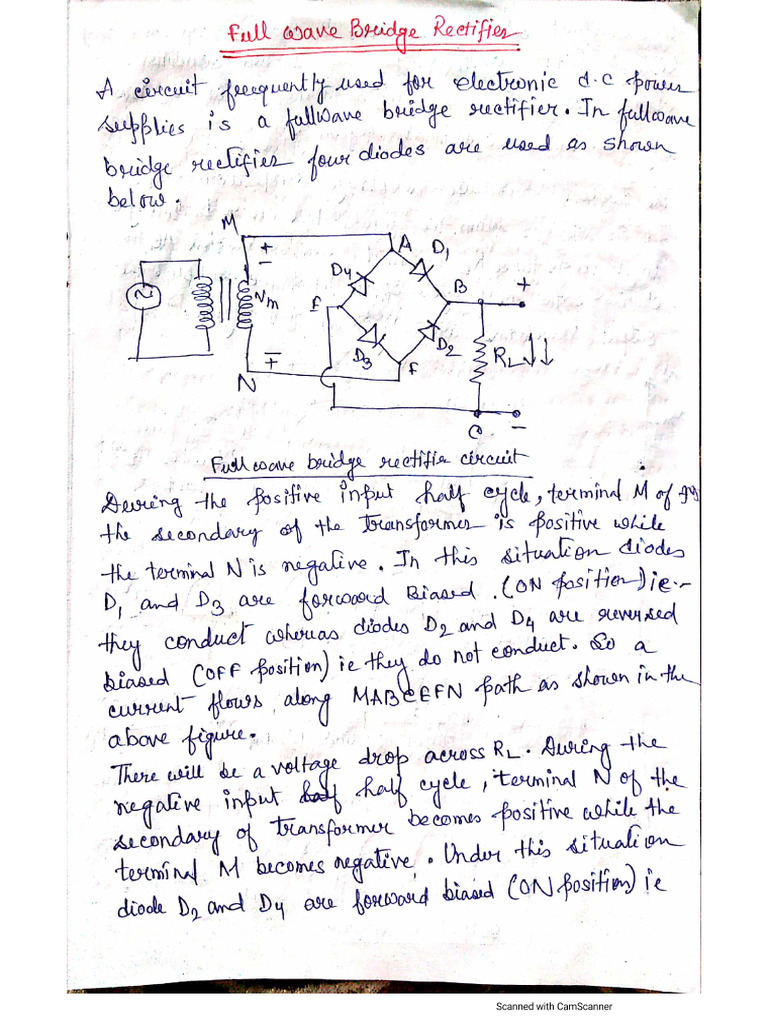 Full wave Bridge Rectifier
A circuit frequently used for electronic d.c power
supplies is a fullwave bridge rectifier. In fullwave
bridge rectifier four diodes are used as shown
below.
M
+
-
A
D1
D4
B
+
Nm
E
D3
D2
RL
F
N
C
-
Full wave bridge rectifie circuit
During the positive input half cycle, terminal M of
the secondary of the transformer is positive while
the terminal N is negative. In this situation diodes
D1 and D3 are forward Biased. (ON position) ie.-
they conduct whereas diodes D2 and D4 are reversed
biased (OFF position) ie they do not conduct. So a
current flows along MABCEFN path as shown in the
above figure.
There will be a voltage drop across RL. During the
negative input half half cycle, terminal N of the
secondary of transformer becomes positive while the
terminal M becomes negative. Under this situation
diode D2 and D4 are forward biased (ON position) ie
Scanned with CamScanner